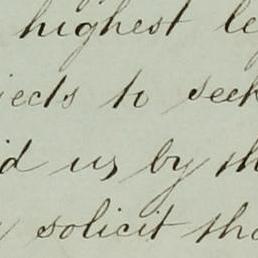 highest le
jects to seek
id us by th
solicit tha